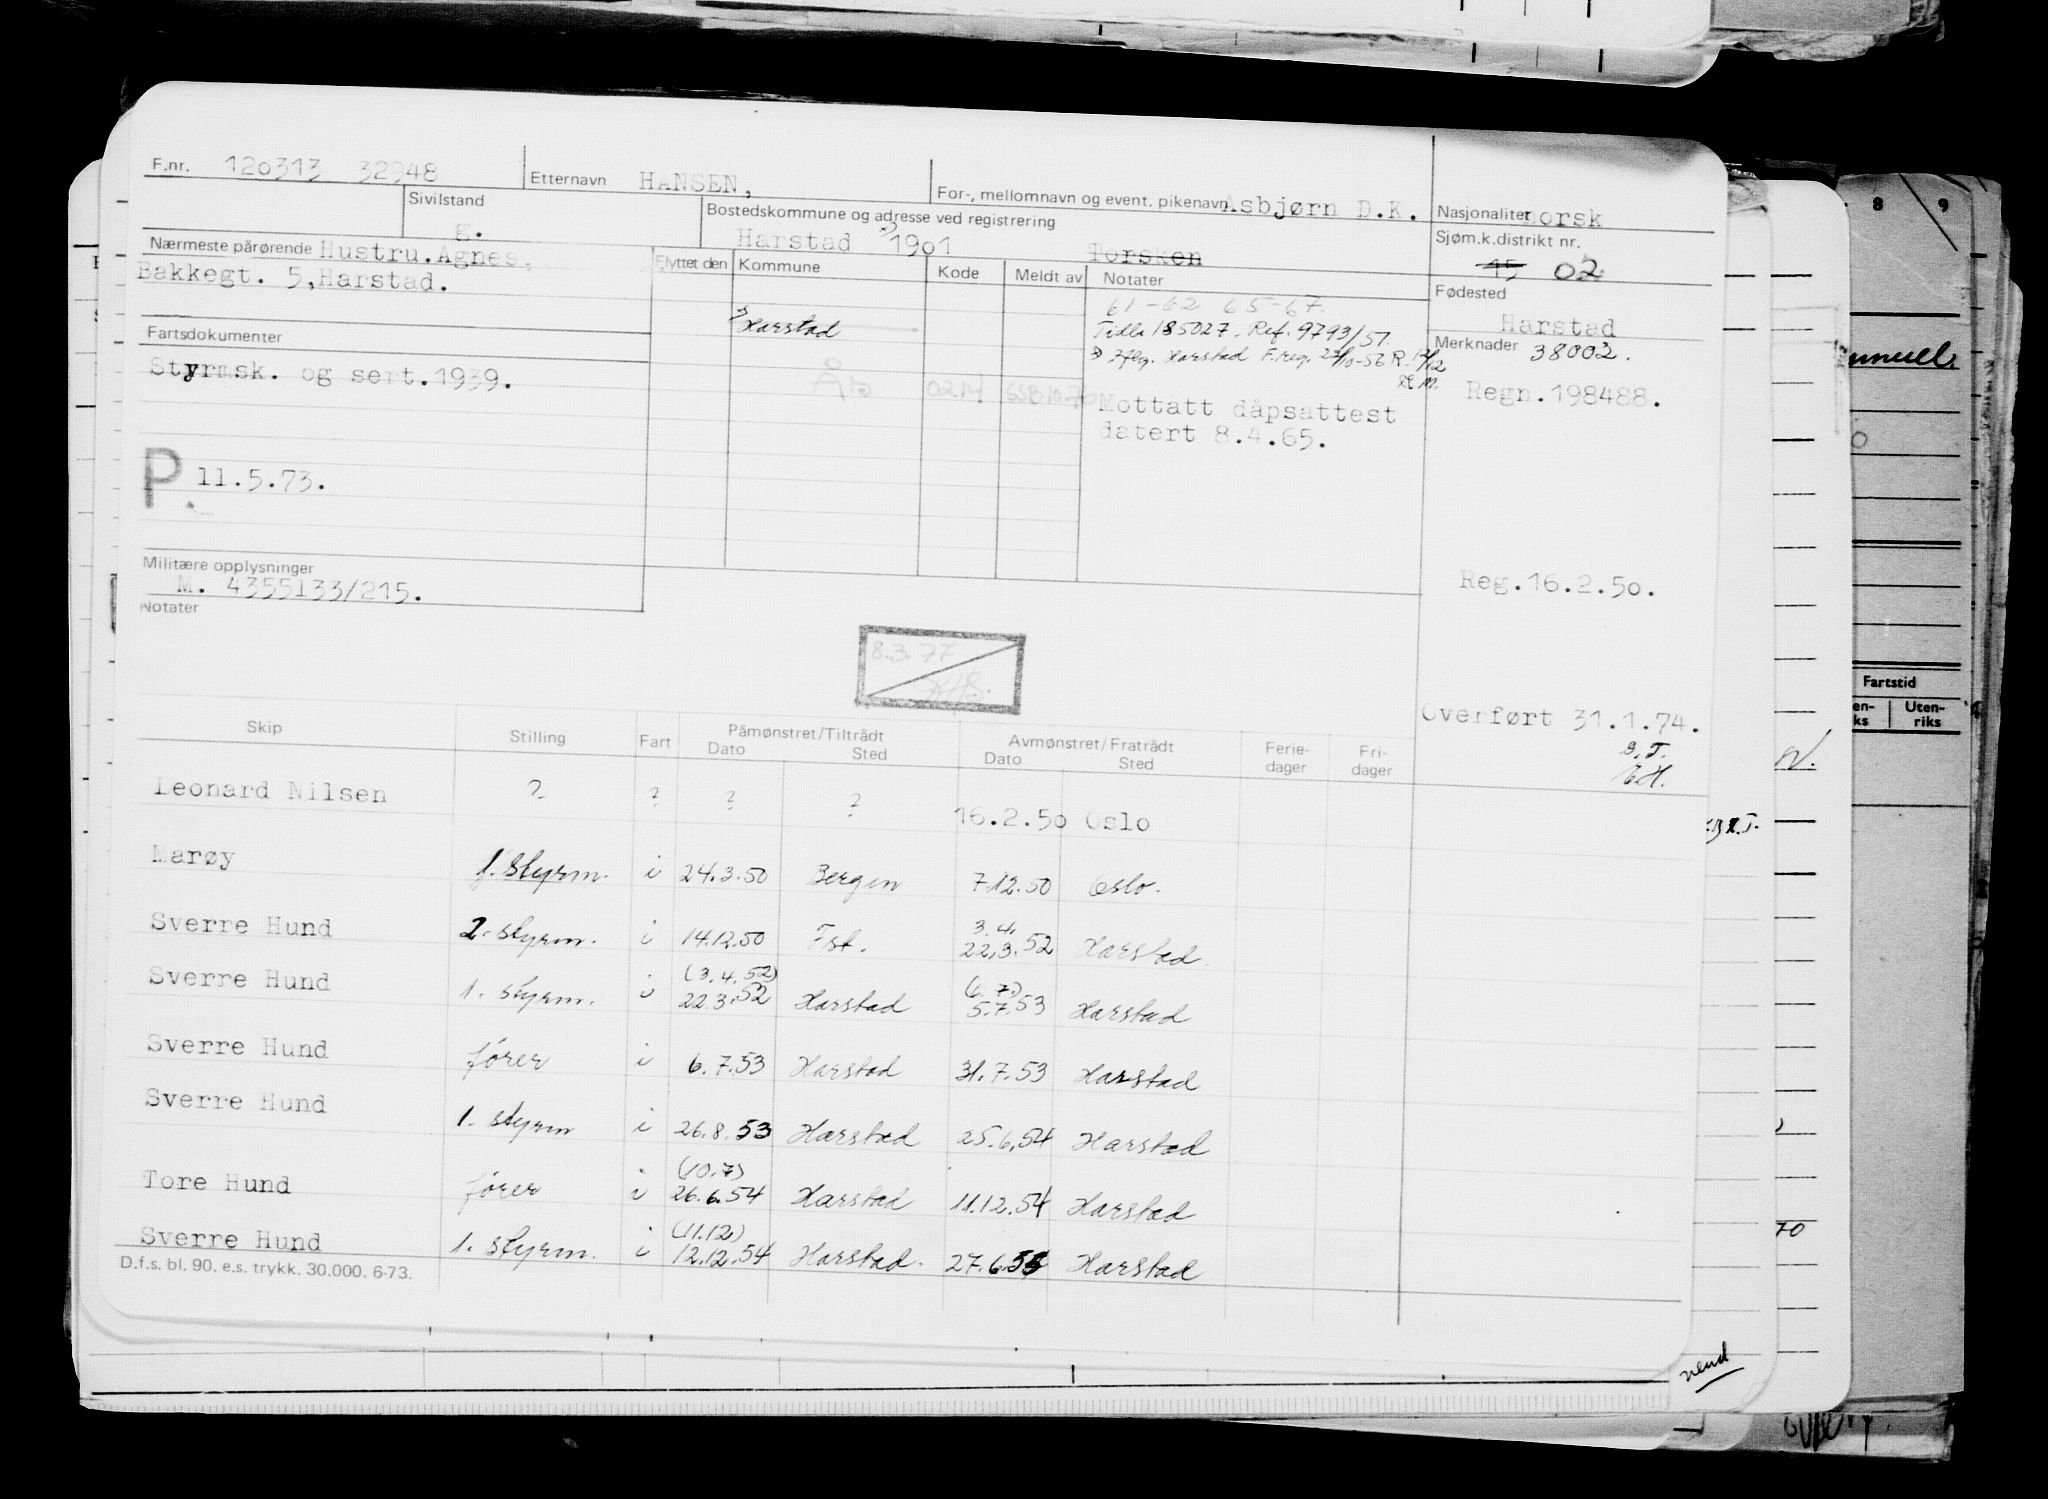 F.nr. 120313 32948 Etternavn HANSEN, For-, mellomnavn og event. pikenavn Asbjørn D.K. Nasjonalitet norsk
Sivilstand g. Bostedskommune og adresse ved registrering Harstad 1901 Torsken Sjøm.k.distrikt nr. 15 02
Nærmeste pårørende Hustru.Agnes,
Bakkegt. 5,Harstad.
Flyttet den Kommune Kode Meldt av Notater
Fødested
Harstad
61-62 65-67.
Harstad
Tidl. 185027. Ref. 9793/51.
Harstad F.reg.
Merknader 38002.
Fartsdokumenter
Styrmsk. og sert.1939.
Ås 0214 SSB1076
Regn.198488.
Mottatt dåpsattest
datert 8.4.65.
P. 11.5.73.
Militære opplysninger
M. 4355133/215.
Reg.16.2.50.
Notater
8.3.77
Overført 31.1.74.
Skip Stilling Fart Påmønstret/Tiltrådt Avmønstret/Fratrådt Ferie- Fri-
Dato Sted Dato Sted dager dager
Leonard Nilsen ? ? ? ? 16.2.50 Oslo
Marøy 1. styrm. i 24.3.50 Bergen 7.12.50 Oslo.
3.4.
Sverre Hund 2. styrm. i 14.12.50 Fst. 22.3.52 Harstad.
(3.4.52) (6.7.)
Sverre Hund 1. styrm. i 22.3.52 Harstad 5.7.53 Harstad
Sverre Hund fører i 6.7.53 Harstad 31.7.53 Harstad
Sverre Hund 1. styrm i 26.8.53 Harstad 25.6.54 Harstad
(10.7)
Tore Hund fører i 26.6.54 Harstad 11.12.54 Harstad
(11.12)
Sverre Hund 1. styrm. i 12.12.54 Harstad. 27.6.55 Harstad
D.f.s. bl. 90. e.s. trykk. 30.000. 6-73.
8 9
Fartstid
Uten-
riks
70
vend